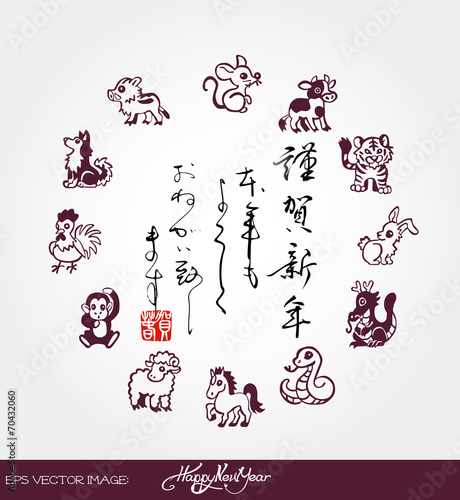 謹賀新年
本年も
よろしく
おねがい致し
ます
賀春
EPS VECTOR IMAGE:
Happy New Year
Adobe Stock | #70432060